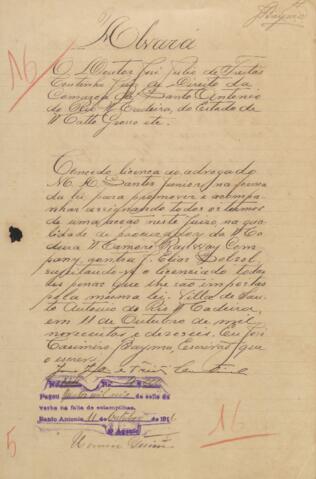 Bayma
16
Alvará
O Doutor José Julio de Freitas
Coutinho Juiz de Direito da
Comarca de Santo Antonio
do Rio Madeira, do Estado de
Matto Grosso etc.
Concedo licença ao advogado
M. H. Santos Junior, na forma
da lei para promover e acompa-
nhar assignando todos os termos
de uma acção neste juizo na qua-
lidade de procurador da Ma-
deira Mamoré Railway Com-
pany, contra J. Elias
sujeitando-se o licenciado todas
as penas que lhe são impostas
pela mesma lei. Villa de San-
to Antonio do Rio Madeira,
em 11 de Outubro de mil
novecentos e dezeseis. Eu José
Casimiro Bayma, Escrivão que
o escrevi.
Pagou de sello de
verba na falta de estampilhas.
Santo Antonio 11 de Outubro de 191
16
5